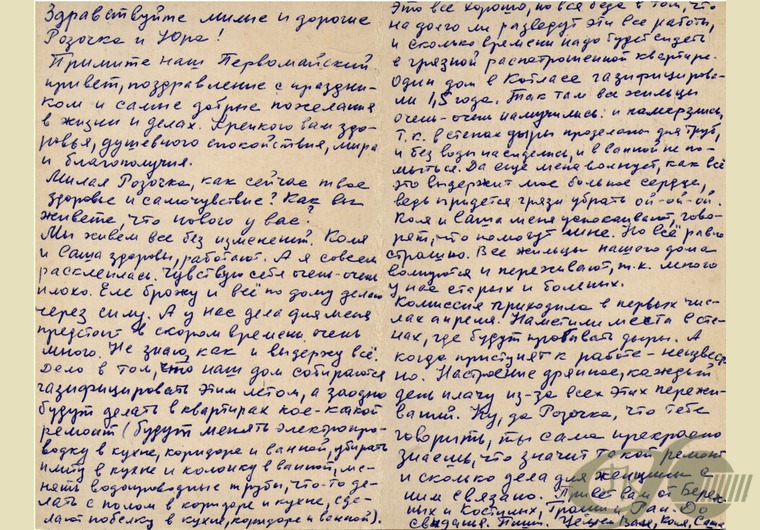 Здравствуйте милые и дорогие
Розочка и Юра!
Примите наш Первомайский
привет, поздравление с праздни-
ком и самые добрые пожелания
в жизни и делах. Крепкого вам здо-
ровья, душевного спокойствия, мира
и благополучия.
Милая Розочка, как сейчас твое
здоровье и самочувствие? Как вы
живёте, что нового у вас?
Мы живём все без изменений. Коля
и Саша здоровы, работают. А я совсем
расклеилась. Чувствую себя очень-очень
плохо. Еле брожу и всё по дому делаю
через силу. А у нас дела для меня
предстоит в скором времени очень
много. Не знаю, как и выдержу всё.
Дело в том, что наш дом собираются
газифицировать этим летом, а заодно
будут делать в квартирах кое-какой
ремонт (будут менять электропро-
водку в кухне, коридоре и ванной, убирать
плиту в кухне и колонку в ванной, ме-
нять водопроводные трубы, что-то де-
лать с полом в коридоре и кухне, сде-
лают побелку в кухне, коридоре и ванной).
Это всё хорошо, но вся беда в том, что
на долго ли разведут эти все работы,
и сколько времени надо будет сидеть
в грязной распотрошенной квартире.
Один дом в Котласе газифицирова-
ли 1,5 года. Так там все жильцы
очень-очень намучились и намерзлись,
т.к. в стенах дыры проделаны для труб,
и без воды насиделись, и в ванной не по-
мыться. Да ещё меня волнует, как всё
это выдержит мое больное сердце,
ведь придется грязи убрать ой-ой-ой.
Коля и Саша меня успокаивают, гово-
рят, что помогут мне. Но всё равно
страшно. Все жильцы нашего дома
волнуются и переживают, т.к. много
у нас старых и больных.
Комиссия приходила в первых чис-
лах апреля. Наметили места в сте-
нах, где будут пробивать дыры. А
когда приступят к работе - неизвест-
но. Настроение дрянное, каждый
день плачу из-за всех этих пережи-
ваний. Ну, да Розочка, что тебе
говорить, ты сама прекрасно
знаешь, что значит такой ремонт
и сколько дела для женщины с
ним связано. Привет вам от
и Костиных, и Раи. До
свидания. Пиши. Целуем Вас, Коля, Саша